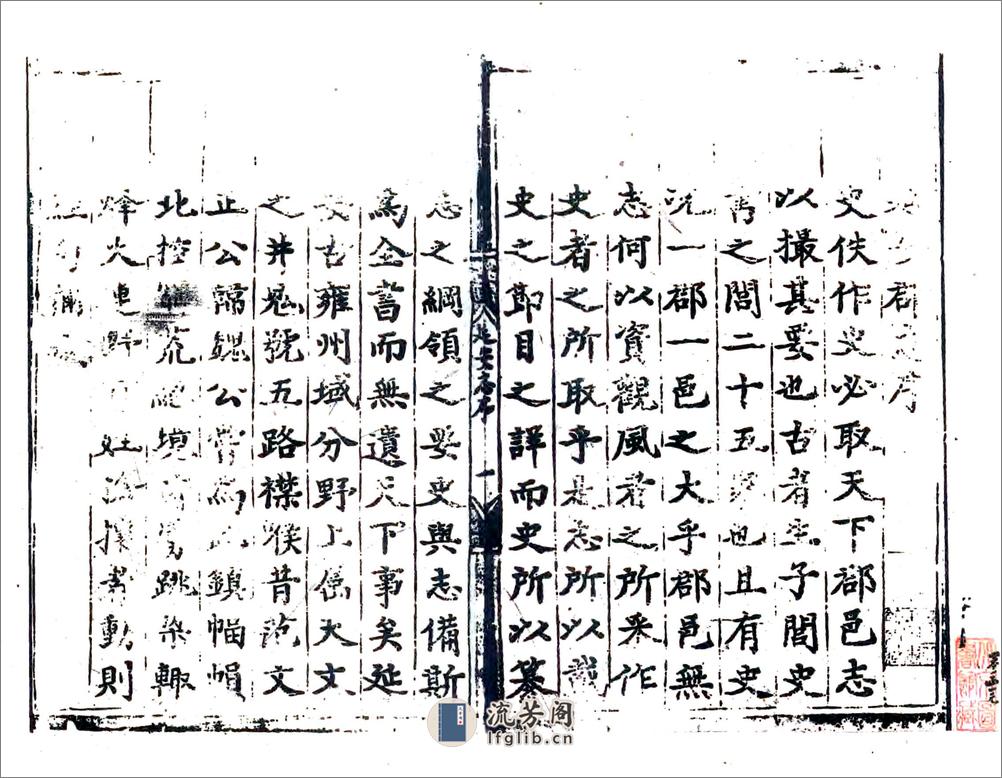 郡志序
史佚作史必取天下郡邑志
以撮其要也古者生子閭史
書之閭二十五家也且有史
況一郡一邑之大乎郡邑無
志何以資觀風者之所采作
史者之所取乎是志所以載
史之節目之詳而史所以纂
延安志序 一
志之綱領之要史與志備斯
為全書而無遺天下事矣延
安古雍州域分野上属天文
之井鬼號五路襟喉昔范文
正公韓魏公嘗為鎮幅幀
北控 境 跳梁輙
烽火 動則
流芳阁
lfglib.cn